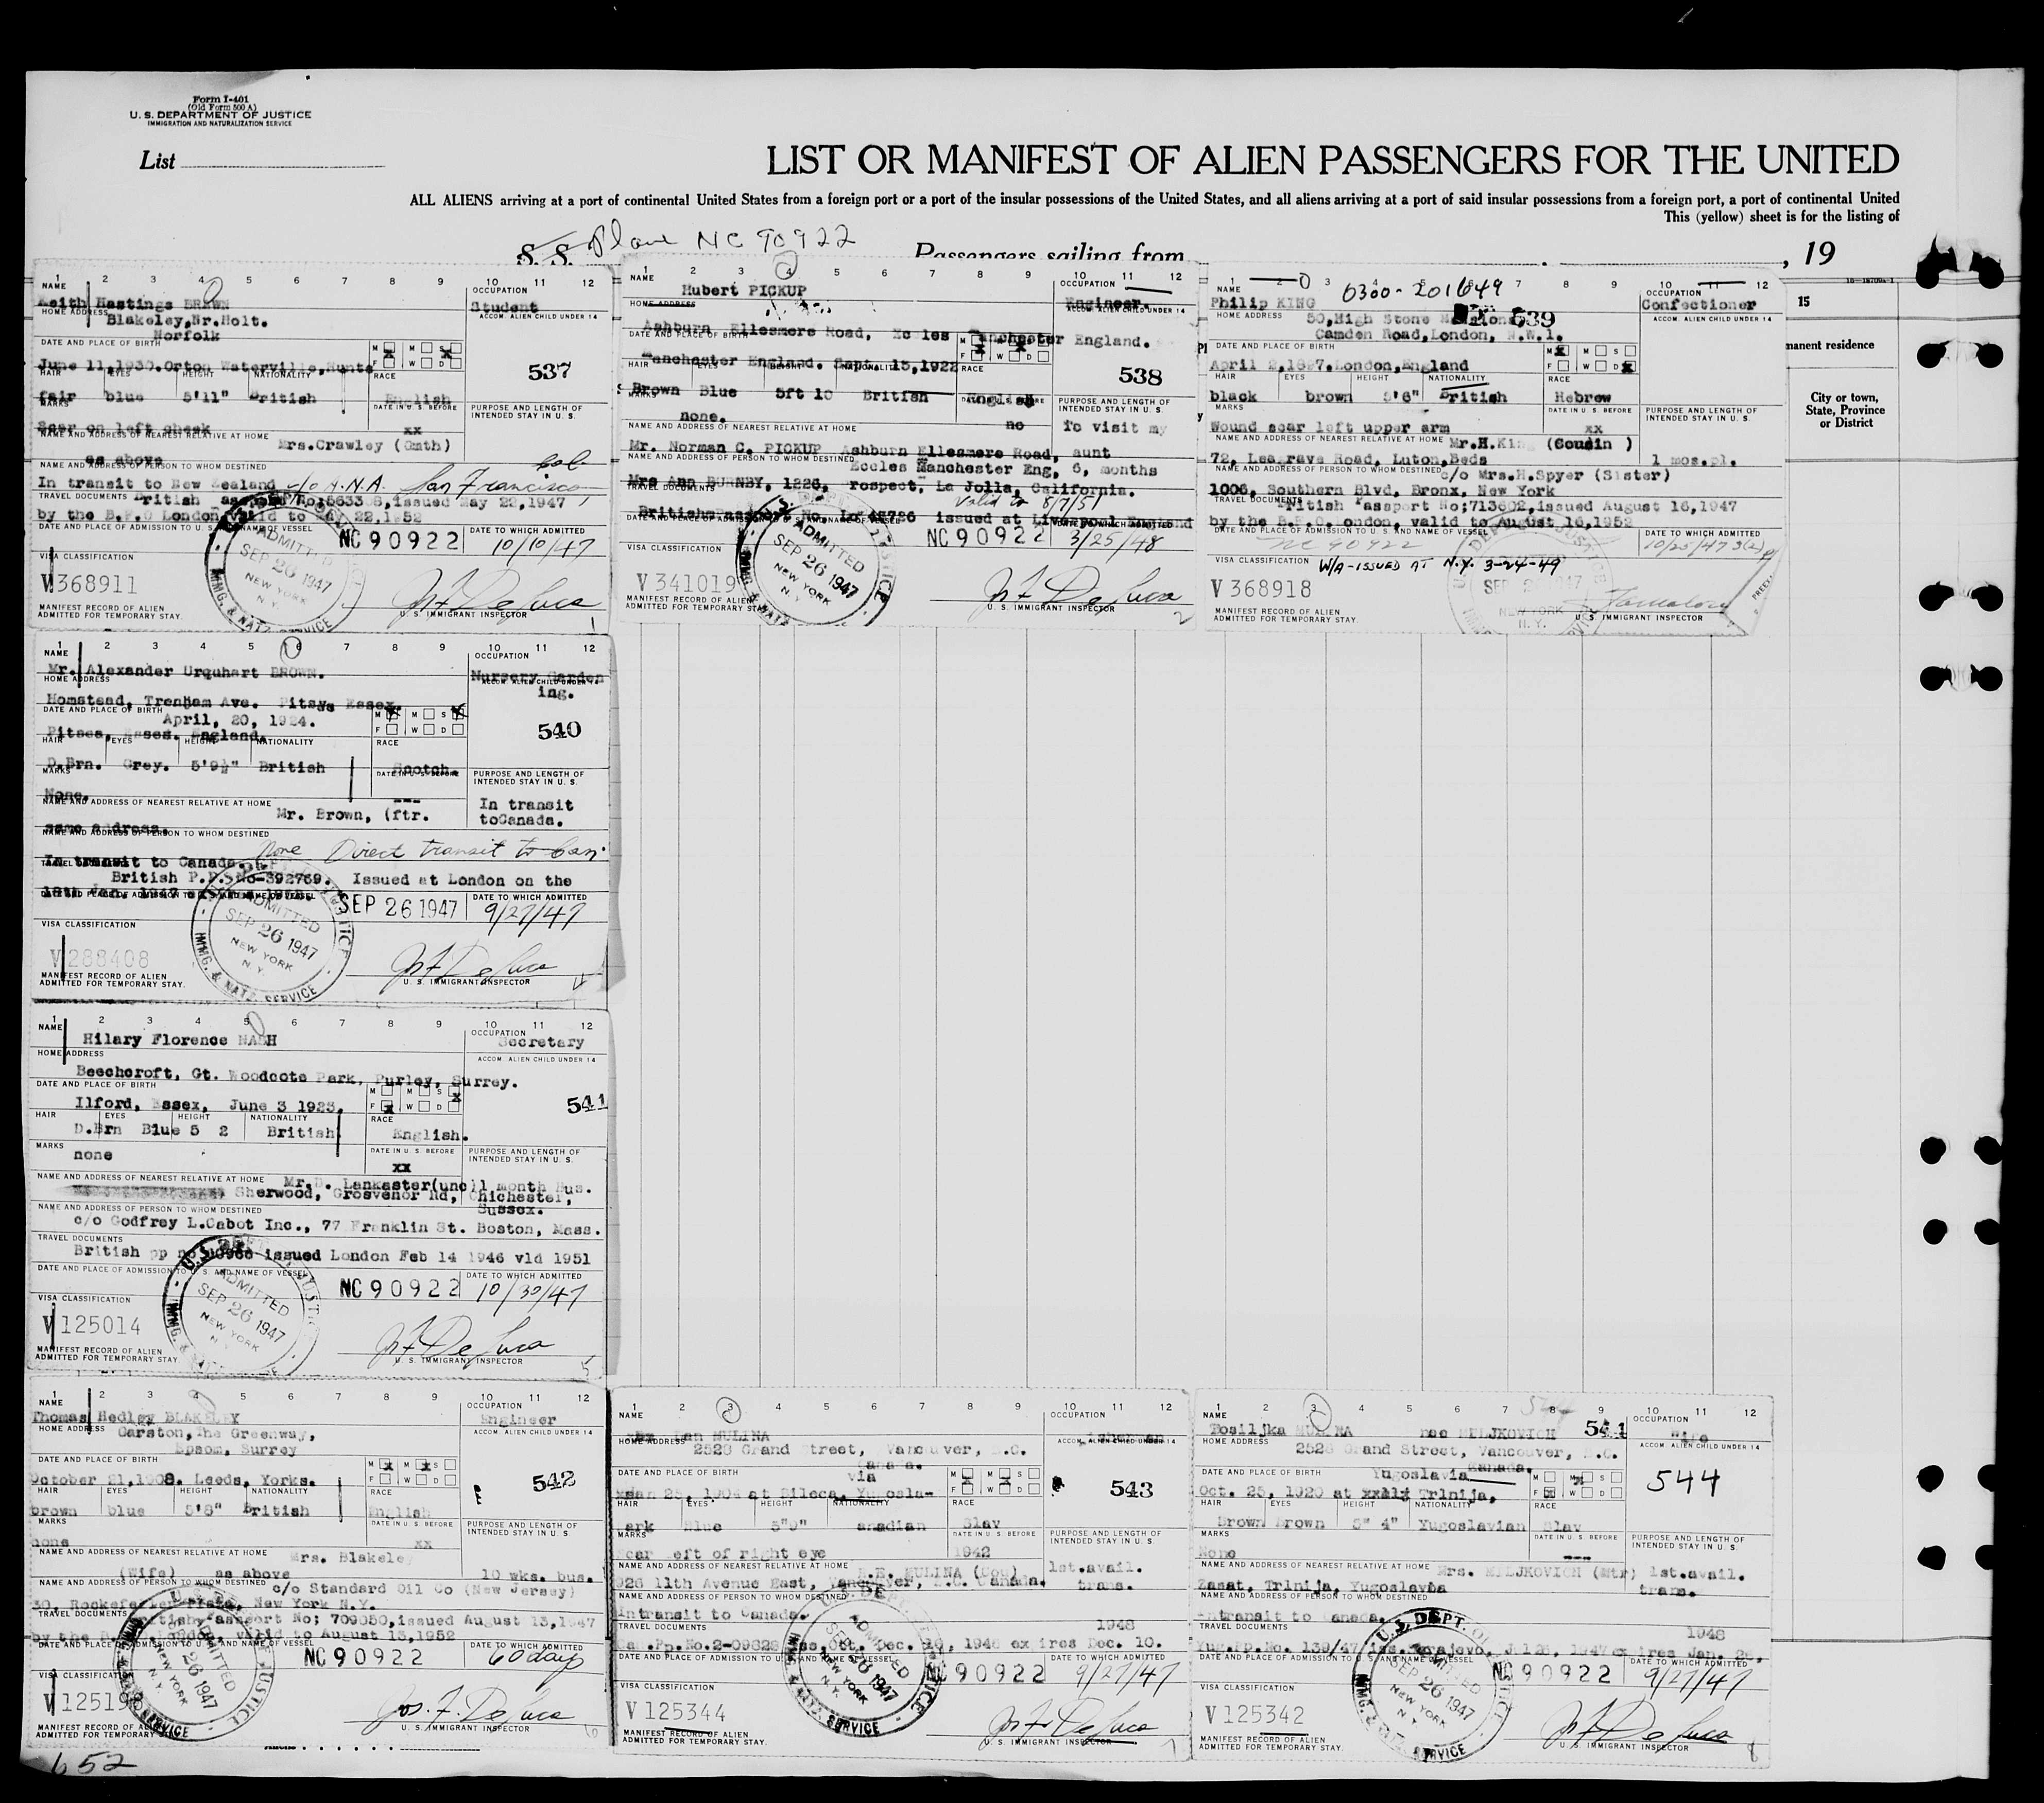 Form I-401
(Old Form 500 A)
U. S. DEPARTMENT OF JUSTICE
IMMIGRATION AND NATURALIZATION SERVICE
List
LIST OR MANIFEST OF ALIEN PASSENGERS FOR THE UNITED
ALL ALIENS arriving at a port of continental United States from a foreign port or a port of the insular possessions of the United States, and all aliens arriving at a port of said insular possessions from a foreign port, a port of continental United
This (yellow) sheet is for the listing of
S. S. Plane NC 90922
Passengers sailing from
, 19
15
manent residence
City or town,
State, Province
or District
1 2 3 4 5 6 7 8 9 10 11 12
NAME
OCCUPATION
Keith Hastings BROWN
Student
HOME ADDRESS
ACCOM. ALIEN CHILD UNDER 14
Blakeley,Nr.Holt.
Norfolk
DATE AND PLACE OF BIRTH
M M S
F W D
June 11,1930.Orton Waterville,Hunts
537
HAIR EYES HEIGHT NATIONALITY RACE
fair blue 5'11" British English
MARKS
DATE IN U.S. BEFORE
PURPOSE AND LENGTH OF INTENDED STAY IN U. S.
Scar on left cheek
xx
NAME AND ADDRESS OF NEAREST RELATIVE AT HOME
Mrs.Crawley (Gmth)
as above
NAME AND ADDRESS OF PERSON TO WHOM DESTINED
In transit to New Zealand c/o A.N.A. San Francisco
TRAVEL DOCUMENTS
issued May 22,1947
by the B.P.O London, valid to May 22,1952
DATE AND PLACE OF ADMISSION TO U. S. AND NAME OF VESSEL
NC90922
DATE TO WHICH ADMITTED
10/10/47
VISA CLASSIFICATION
V368911
ADMITTED
SEP 26 1947
NEW YORK
N.Y.
IMMG. & NATZ. SERVICE
MANIFEST RECORD OF ALIEN
ADMITTED FOR TEMPORARY STAY.
Jos F De Luca
U. S. IMMIGRANT INSPECTOR
1
1 2 3 4 5 6 7 8 9 10 11 12
NAME
OCCUPATION
Hubert PICKUP
Engineer.
HOME ADDRESS
ACCOM. ALIEN CHILD UNDER 14
Ashburn Ellesmere Road, Eccles Manchester England.
DATE AND PLACE OF BIRTH
M M S
F W D
Manchester England. Sept 15,1922
538
HAIR EYES HEIGHT NATIONALITY RACE
Brown Blue 5ft 10 British English
MARKS
DATE IN U.S. BEFORE
PURPOSE AND LENGTH OF INTENDED STAY IN U. S.
none.
no
To visit my
NAME AND ADDRESS OF NEAREST RELATIVE AT HOME
Mr. Norman C. PICKUP Ashburn Ellesmere Road, aunt
Eccles Manchester Eng, 6, months
NAME AND ADDRESS OF PERSON TO WHOM DESTINED
Mrs Ann BURNBY, 1226, rospect, La Jolla, California.
TRAVEL DOCUMENTS
Valid to 8/7/51
British Passport No. issued at Liverpool England
NC90922
DATE TO WHICH ADMITTED
3/25/48
VISA CLASSIFICATION
V341019
ADMITTED
SEP 26 1947
NEW YORK
N.Y.
MANIFEST RECORD OF ALIEN
ADMITTED FOR TEMPORARY STAY.
Jos F De Luca
U. S. IMMIGRANT INSPECTOR
2
NAME
0300-201649
OCCUPATION
Philip KING
Confectioner
HOME ADDRESS
ACCOM. ALIEN CHILD UNDER 14
50,High Stone Mansions,
539
Camden Road,London, N.W.1.
DATE AND PLACE OF BIRTH
M M S
F W D
April 2,1897.London,England
HAIR EYES HEIGHT NATIONALITY RACE
black brown 5'6" British Hebrew
MARKS
DATE IN U.S. BEFORE
PURPOSE AND LENGTH OF INTENDED STAY IN U. S.
Wound scar left upper arm
xx
NAME AND ADDRESS OF NEAREST RELATIVE AT HOME
Mr.H.King (Cousin )
72, Leagrave Road, Luton,Beds
1 mos.pl.
NAME AND ADDRESS OF PERSON TO WHOM DESTINED
c/o Mrs.H.Spyer (Sister)
1006, Southern Blvd, Bronx, New York
TRAVEL DOCUMENTS
British Passport No;713602,issued August 16,1947
by the B.P.O. London, valid to August 16,1952
DATE AND PLACE OF ADMISSION TO U. S. AND NAME OF VESSEL
NC 90922
DATE TO WHICH ADMITTED
10/25/47 3(2)
VISA CLASSIFICATION
W/A-ISSUED AT N.Y. 3-24-49
V368918
MANIFEST RECORD OF ALIEN
ADMITTED FOR TEMPORARY STAY.
U. S. IMMIGRANT INSPECTOR
1 2 3 4 5 6 7 8 9 10 11 12
NAME
OCCUPATION
Mr. Alexander Urquhart BROWN.
Nursery Garden
ing.
HOME ADDRESS
Homstead, Trenham Ave. Pitsea Essex.
DATE AND PLACE OF BIRTH
April, 20, 1924.
M M S
F W D
540
Pitsea, Essex. England.
HAIR EYES HEIGHT NATIONALITY RACE
D.Brn. Grey. 5'9½" British Scotch.
MARKS
DATE IN U.S. BEFORE
PURPOSE AND LENGTH OF INTENDED STAY IN U. S.
None.
---
NAME AND ADDRESS OF NEAREST RELATIVE AT HOME
Mr. Brown, (ftr.
In transit
toCanada.
same address.
NAME AND ADDRESS OF PERSON TO WHOM DESTINED
none Direct transit to Can.
In transit to Canada.
British P.P. No-392769. Issued at London on the
SEP 26 1947
DATE TO WHICH ADMITTED
9/27/47
VISA CLASSIFICATION
V288408
ADMITTED
SEP 26 1947
NEW YORK
N.Y.
IMMG. & NATZ. SERVICE
MANIFEST RECORD OF ALIEN
ADMITTED FOR TEMPORARY STAY.
Jos F De Luca
U. S. IMMIGRANT INSPECTOR
4
1 2 3 4 5 6 7 8 9 10 11 12
NAME
OCCUPATION
Hilary Florence NASH
Secretary
HOME ADDRESS
ACCOM. ALIEN CHILD UNDER 14
Beechcroft, Gt. Woodcote Park, Purley, Surrey.
DATE AND PLACE OF BIRTH
M M S
F W D
Ilford, Essex, June 3 1923.
541
HAIR EYES HEIGHT NATIONALITY RACE
D.Brn Blue 5 2 British English.
MARKS
DATE IN U.S. BEFORE
PURPOSE AND LENGTH OF INTENDED STAY IN U. S.
none
xx
NAME AND ADDRESS OF NEAREST RELATIVE AT HOME
Lankaster(unc) 1 month Bus.
Sherwood, Grosvenor Rd, Chichester,
Sussex.
NAME AND ADDRESS OF PERSON TO WHOM DESTINED
c/o Godfrey L.Cabot Inc., 77 Franklin St. Boston, Mass.
TRAVEL DOCUMENTS
British pp no issued London Feb 14 1946 vld 1951
DATE AND PLACE OF ADMISSION TO U. S. AND NAME OF VESSEL
NC90922
DATE TO WHICH ADMITTED
10/30/47
VISA CLASSIFICATION
V125014
ADMITTED
SEP 26 1947
NEW YORK
MANIFEST RECORD OF ALIEN
ADMITTED FOR TEMPORARY STAY
Jos F De Luca
U. S. IMMIGRANT INSPECTOR
5
1 2 3 4 5 6 7 8 9 10 11 12
NAME
OCCUPATION
Thomas Hedley BLAKELEY
Engineer
HOME ADDRESS
ACCOM. ALIEN CHILD UNDER 14
Garston,The Greenway,
Epsom, Surrey
DATE AND PLACE OF BIRTH
M M S
F W D
October 21,1908. Leeds, Yorks.
542
HAIR EYES HEIGHT NATIONALITY RACE
brown blue 5'8" British English
MARKS
DATE IN U.S. BEFORE
PURPOSE AND LENGTH OF INTENDED STAY IN U. S.
none
xx
NAME AND ADDRESS OF NEAREST RELATIVE AT HOME
Mrs. Blakeley
(Wife) as above
10 wks. bus.
NAME AND ADDRESS OF PERSON TO WHOM DESTINED
c/o Standard Oil Co (New Jersey)
30, Rockefeller Plaza, New York N.Y.
TRAVEL DOCUMENTS
British Passport No; 709050,issued August 13,1947
by the B.P.O. London, valid to August 13,1952
DATE AND PLACE OF ADMISSION TO U. S. AND NAME OF VESSEL
NC90922
DATE TO WHICH ADMITTED
60 days
VISA CLASSIFICATION
ADMITTED
SEP 26 1947
NEW YORK
N.Y.
MANIFEST RECORD OF ALIEN
ADMITTED FOR TEMPORARY STAY.
Jos. F. De Luca
U. S. IMMIGRANT INSPECTOR
6
652
1 2 3 4 5 6 7 8 9 10 11 12
NAME
OCCUPATION
MULINA
HOME ADDRESS
2528 Grand Street, Vancouver, B.C.
Canada.
DATE AND PLACE OF BIRTH
via
M M S
F W D
at Bileca, Yugosla-
543
HAIR EYES HEIGHT NATIONALITY RACE
Dark Blue 5"9" Canadian Slav
MARKS
DATE IN U.S. BEFORE
PURPOSE AND LENGTH OF INTENDED STAY IN U. S.
Scar left of right eye
1942
NAME AND ADDRESS OF NEAREST RELATIVE AT HOME
MULINA (Cou)
1st.avail.
11th Avenue East, Vancouver, B.C. Canada.
trans.
NAME AND ADDRESS OF PERSON TO WHOM DESTINED
Intransit to Canada.
TRAVEL DOCUMENTS
1948
Can.Pp.No.2-09828 iss.Ott. Dec. 10, 1946 expires Dec. 10.
DATE AND PLACE OF ADMISSION TO U. S. AND NAME OF VESSEL
NC90922
DATE TO WHICH ADMITTED
9/27/47
VISA CLASSIFICATION
V125344
ADMITTED
SEP 26 1947
NEW YORK
N.Y.
MANIFEST RECORD OF ALIEN
ADMITTED FOR TEMPORARY STAY.
Jos F De Luca
U. S. IMMIGRANT INSPECTOR
7
NAME
OCCUPATION
Tosiljka MULINA nee MILJKOVICH
541
Wife
HOME ADDRESS
ACCOM. ALIEN CHILD UNDER 14
2528 Grand Street, Vancouver, B.C.
Canada.
DATE AND PLACE OF BIRTH
Yugoslavia
M M S
F W D
544
Oct. 25, 1920 at Trlnija,
HAIR EYES HEIGHT NATIONALITY RACE
Brown Brown 5" 4" Yugoslavian Slav
MARKS
DATE IN U.S. BEFORE
PURPOSE AND LENGTH OF INTENDED STAY IN U. S.
None
---
NAME AND ADDRESS OF NEAREST RELATIVE AT HOME
Mrs. MILJKOVICH (Mtr) 1st.avail.
Zasat, Trlnija, Yugoslavba
trans.
NAME AND ADDRESS OF PERSON TO WHOM DESTINED
Intransit to Canada.
TRAVEL DOCUMENTS
1948
Yug.Pp.No. 139/47 iss.Sarajevo, 1947 expires Jan.
DATE AND PLACE OF ADMISSION TO U. S. AND NAME OF VESSEL
NC90922
DATE TO WHICH ADMITTED
9/27/47
VISA CLASSIFICATION
V125342
U.S. DEPT. OF JUSTICE
ADMITTED
SEP 26 1947
NEW YORK
N.Y.
MANIFEST RECORD OF ALIEN
ADMITTED FOR TEMPORARY STAY.
Jos F De Luca
U. S. IMMIGRANT INSPECTOR
8